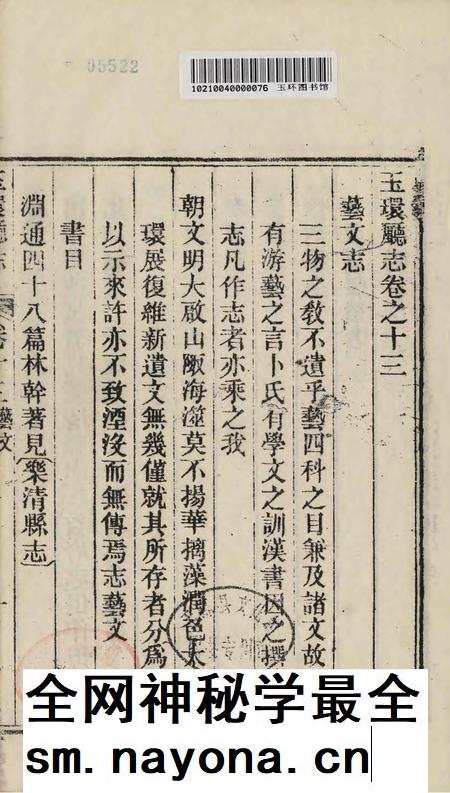 05522
10210040000076 玉环图书馆
玉環廳志卷之十三
藝文志
三物之敎不遺乎藝四科之目兼及諸文故
有游藝之言卜氏有學文之訓漢書因之撰
志凡作志者亦乘之我
朝文明大啟山陬海澨莫不揚華摛藻潤色太
環展復維新遺文無幾僅就其所存者分爲
以示來許亦不致湮沒而無傳焉志藝文
書目
淵通四十八篇林幹著見樂清縣志
全网神秘学最全
sm.nayona.cn